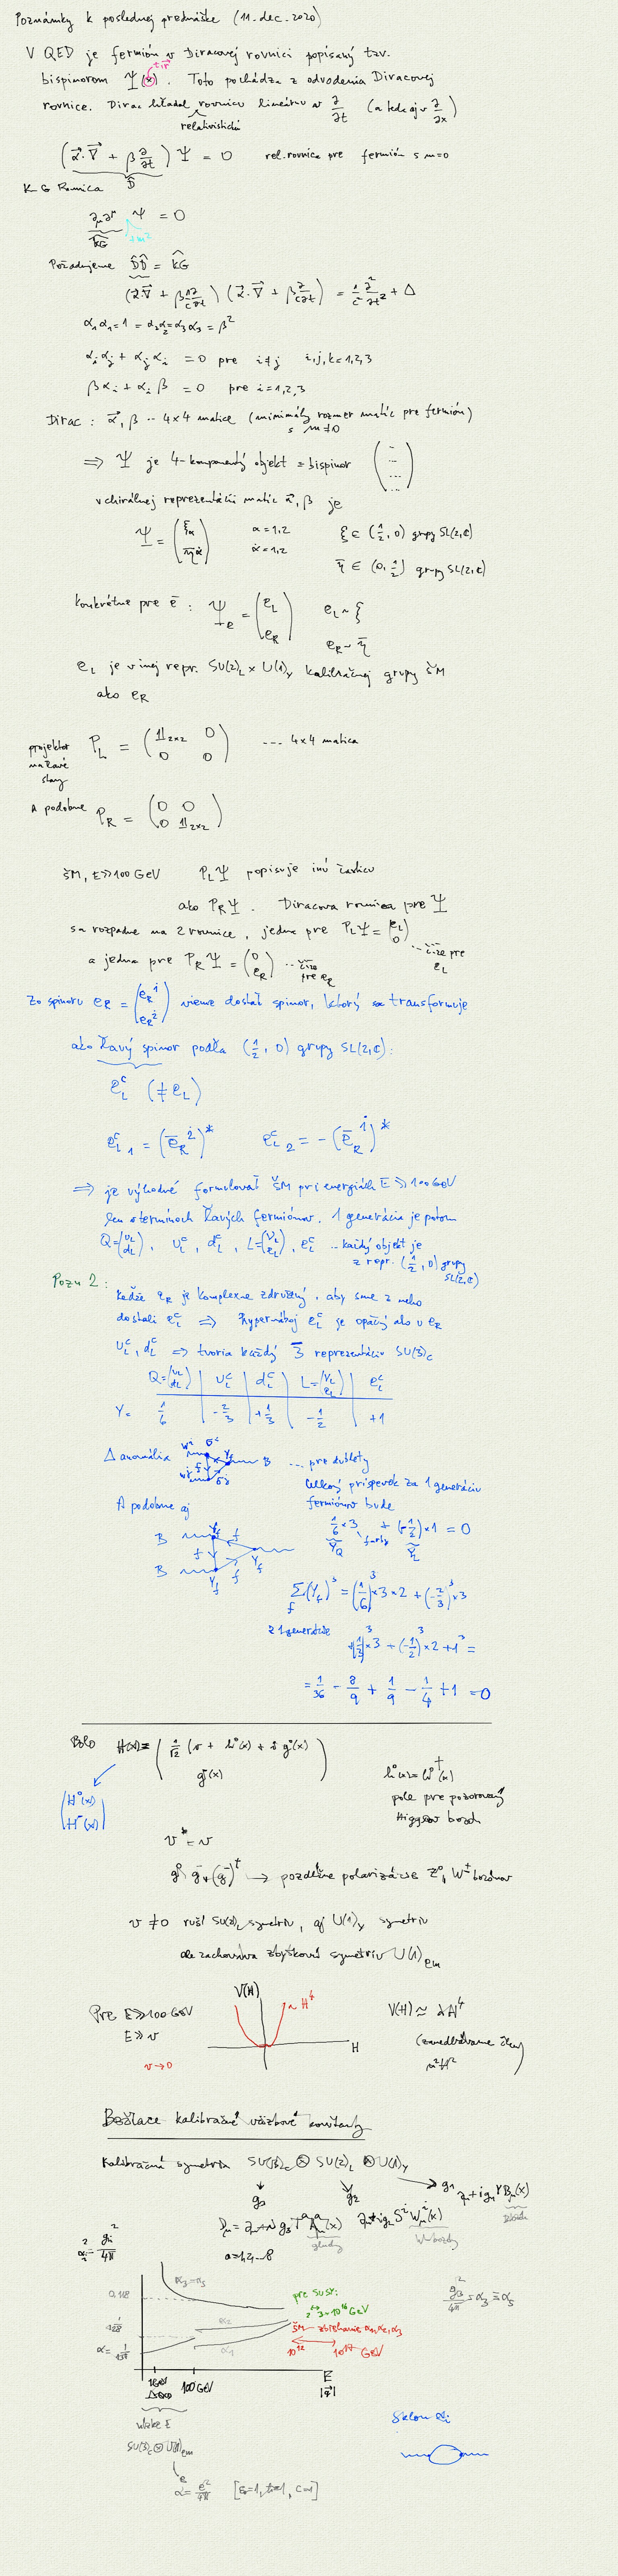 Poznámky k poslednej prednáške (11. dec. 2020)
V QED je fermión v Diracovej rovnici popísaný tzv.
bispinorom Ψ(x). Toto pochádza z odvodenia Diracovej
t, r⃗
rovnice. Dirac hľadal rovnicu lineárnu v ∂/∂t (a teda aj v ∂/∂x)
relativistickú
(α⃗·∇⃗ + β ∂/∂t) Ψ = 0 rel. rovnica pre fermión s m=0
D̂
KG Rovnica
∂_μ ∂^μ Ψ = 0
K̂G + m²
Požadujeme D̂D̂ = K̂G
(α⃗·∇⃗ + β ∂/c∂t) (α⃗·∇⃗ + β ∂/c∂t) = 1/c² ∂²/∂t² + Δ
α₁α₁ = 1 = α₂α₂ = α₃α₃ = β²
α_i α_j + α_j α_i = 0 pre i≠j i,j,k = 1,2,3
β α_i + α_i β = 0 pre i = 1,2,3
Dirac: α⃗, β -- 4x4 matice (minimálny rozmer matíc pre fermión)
s m≠0
⇒ Ψ je 4-komponentný objekt = bispinor
v chirálnej reprezentácii matíc α⃗, β je
Ψ = (ξ_α / η̄^α̇) α = 1,2 ξ ∈ (1/2, 0) grupy SL(2,C)
α̇ = 1,2 η̄ ∈ (0, 1/2) grupy SL(2,C)
Konkrétne pre e⁻: Ψ_e = (e_L / e_R) e_L ~ ξ
e_R ~ η̄
e_L je v inej repr. SU(2)_L × U(1)_Y kalibračnej grupy ŠM
ako e_R
projektor na ľavé stavy P_L = (1_{2x2} 0 / 0 0) --- 4x4 matica
A podobne P_R = (0 0 / 0 1_{2x2})
ŠM, E≫100 GeV P_L Ψ popisuje inú časticu
ako P_R Ψ. Diracova rovnica pre Ψ
sa rozpadne na 2 rovnice, jedna pre P_L Ψ = (e_L / 0) -- čiže pre e_L
a jedna pre P_R Ψ = (0 / e_R) -- čiže pre e_R
Zo spinoru e_R = (e_R^1̇ / e_R^2̇) vieme dostať spinor, ktorý sa transformuje
ako ľavý spinor podľa (1/2, 0) grupy SL(2,C):
e_L^c (≠ e_L)
e_L^c ₁ = (ē_R^2̇)* e_L^c ₂ = -(ē_R^1̇)*
⇒ je výhodné formulovať ŠM pri energiách E≫100 GeV
len v termínoch ľavých fermiónov. 1 generácia je potom
Q=(u_L / d_L), u_L^c, d_L^c, L=(ν_L / e_L), e_L^c ... každý objekt je
z repr. (1/2, 0) grupy SL(2,C)
Pozn 2: keďže e_R je komplexne združený, aby sme z neho
dostali e_L^c ⇒ hypernáboj e_L^c je opačný ako u e_R
u_L^c, d_L^c ⇒ tvoria každý 3̄ reprezentáciu SU(3)_c
Q=(u_L / d_L) | u_L^c | d_L^c | L=(ν_L / e_L) | e_L^c
Y = 1/6 | -2/3 | +1/3 | -1/2 | +1
Δ anomália W^i σ^i Y_f B ... pre dublety
W^j σ^j
Celkový príspevok za 1 generáciu
fermiónov bude
A podobne aj
1/6 × 3 + (-1/2) × 1 = 0
Y_Q farby Y_L
B Y_f f
B Y_f f Y_f
Σ_f (Y_f)³ = (1/6)³ × 3 × 2 + (-2/3)³ × 3
z 1 generácie
+(1/3)³ × 3 + (-1/2)³ × 2 + 1³ =
= 1/36 - 8/9 + 1/9 - 1/4 + 1 = 0
Bolo H(x) = (1/√2 (v + h⁰(x) + i g⁰(x)) / g⁻(x))
(H⁰(x) / H⁻(x))
h⁰(x) = h⁰†(x)
pole pre pozorovaný
Higgsov bozón
v* = v
g⁰, g⁻, (g⁻)† → pozdĺžne polarizácie Z⁰, W± bozónov
v ≠ 0 ruší SU(2)_L symetriu, aj U(1)_Y symetriu
ale zachováva zbytkovú symetriu U(1)_em
Pre E≫100 GeV
E≫v
v→0
V(H)
~ H⁴
H
V(H) ≈ λH⁴
(zanedbávame členy
μ²H²
Bežiace kalibračné väzbové konštanty
Kalibračná symetria SU(3)_c ⊗ SU(2)_L ⊗ U(1)_Y
g₃ g₂ g₁ ∂_μ + i g₁ Y B_μ(x)
D_μ = ∂_μ + i g₃ T^a A_μ^a(x) ∂_μ + i g₂ S^i W_μ^i(x)
gluóny W bozóny
a = 1,2,...8
α_i = g_i²/4π
g₃²/4π = α₃ ≡ α_s
α₃ = α_s
0,118
1/128
α = 1/137
α₂
α₁
pre SUSY:
2 ↔ 3·10¹⁶ GeV
ŠM -- zbiehanie α₁, α₂, α₃
10¹² 10¹⁷ GeV
1 GeV
Λ_QCD
100 GeV
E
|q⃗|
nízke E
SU(3)_c ⊗ U(1)_em
e
α = e²/4π [ε₀=1, ħ=1, c=1]
Sklon α_i